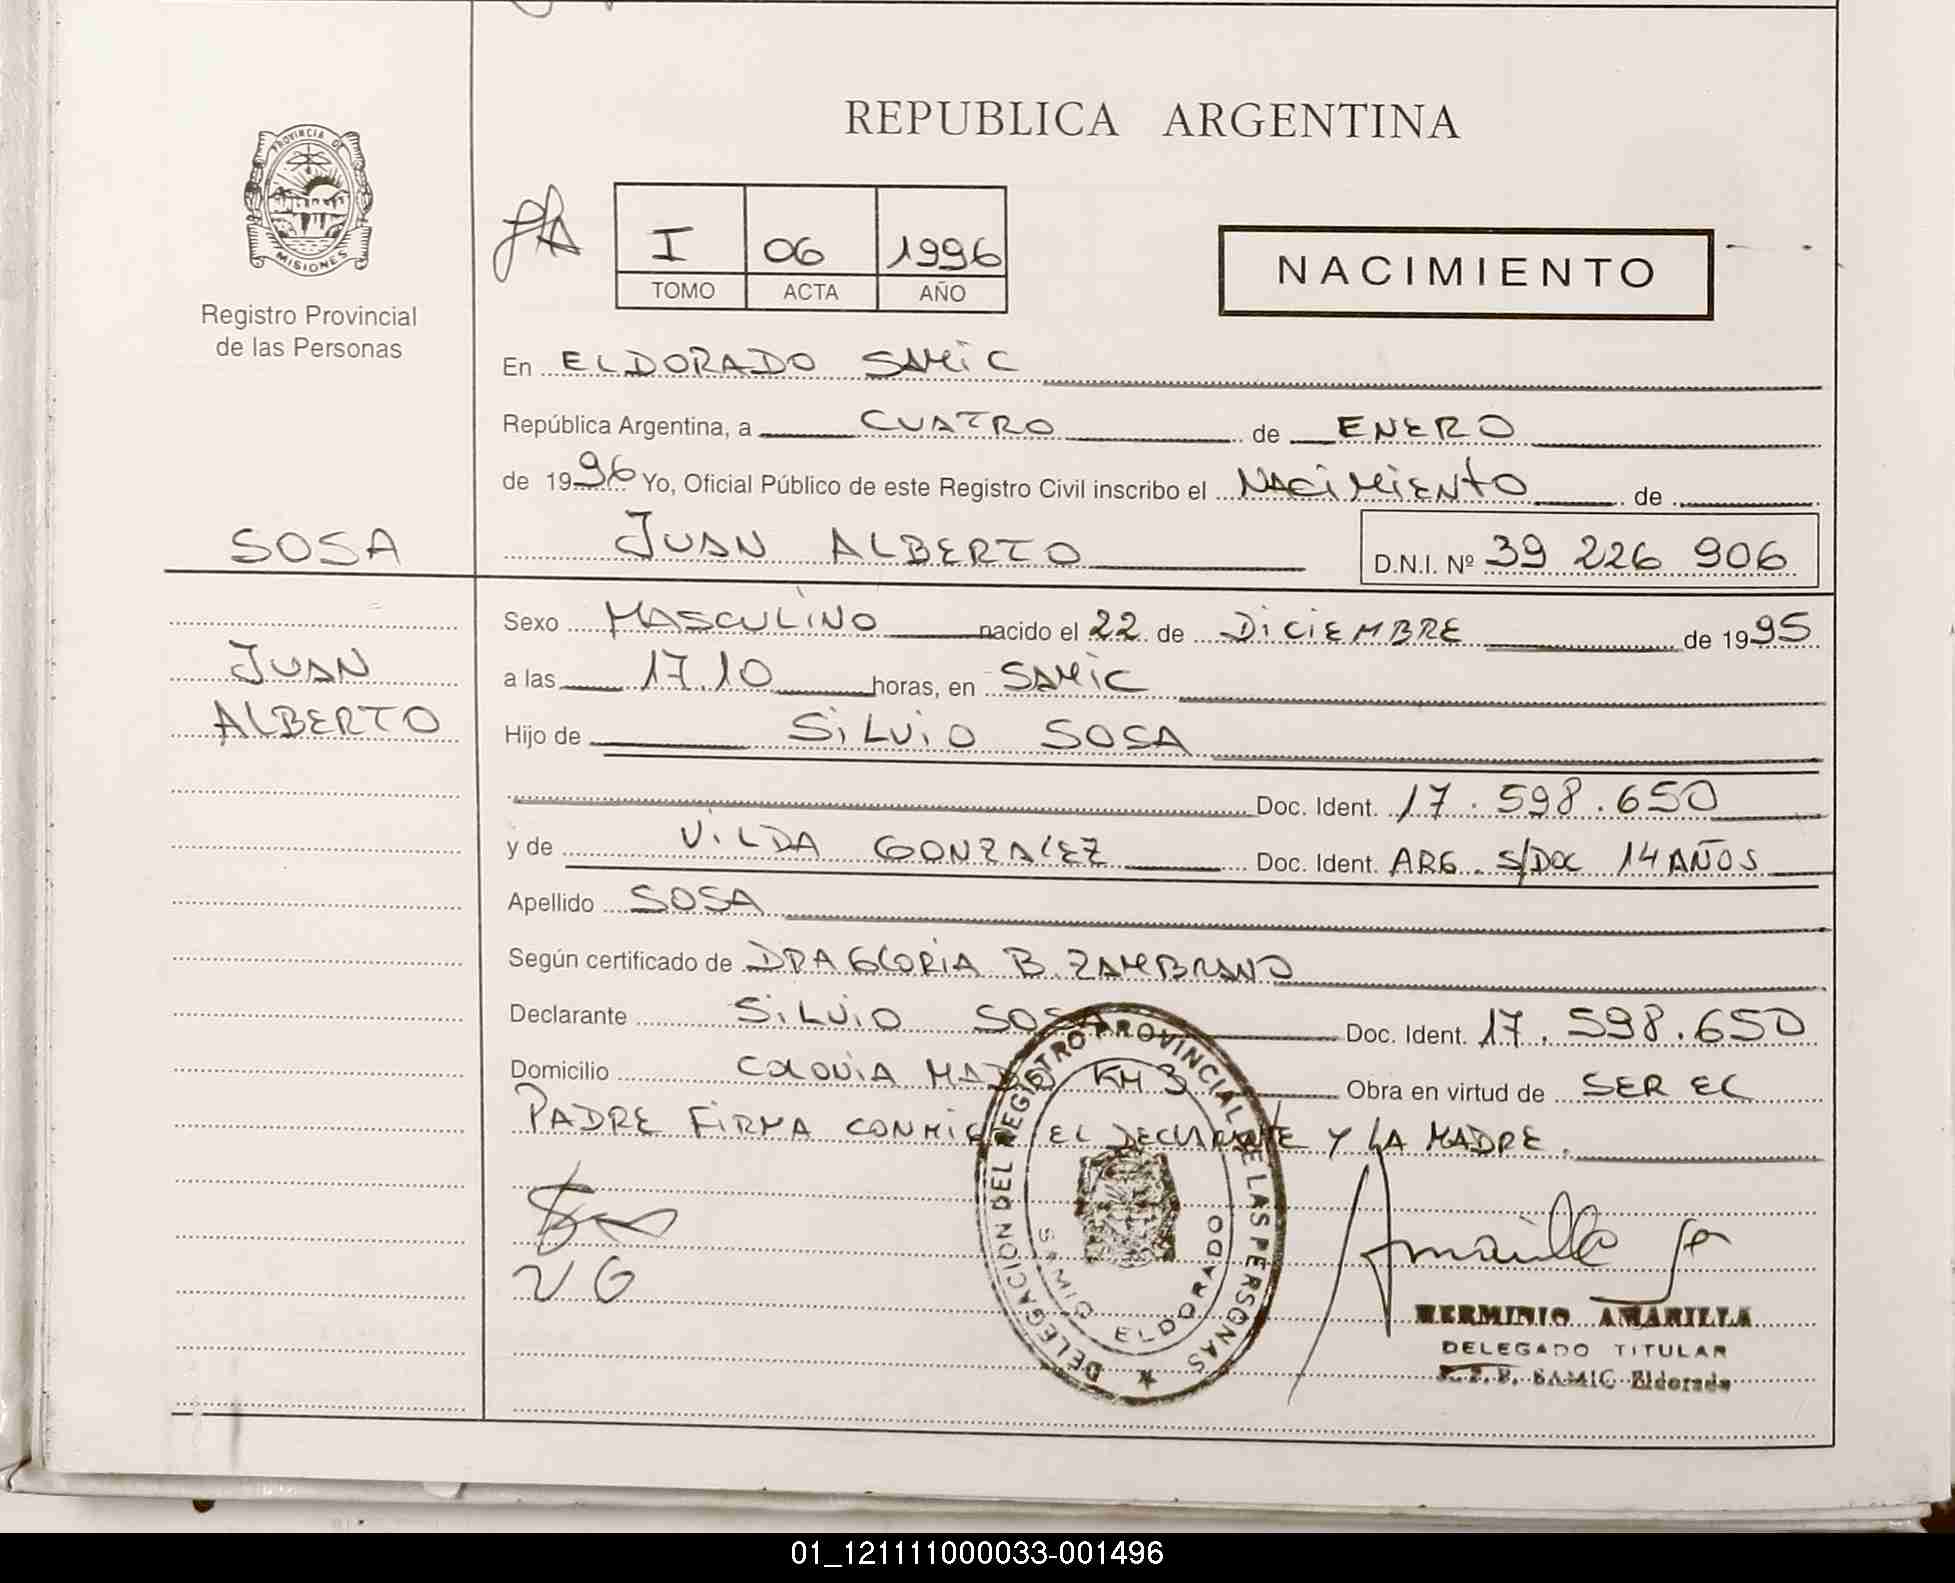 PROVINCIA DE
MISIONES
Registro Provincial
de las Personas
REPUBLICA ARGENTINA
I 06 1996
TOMO ACTA AÑO
NACIMIENTO
En ELDORADO SAMIC
República Argentina, a CUATRO de ENERO
de 1996 Yo, Oficial Público de este Registro Civil inscribo el NACIMIENTO de
SOSA
JUAN ALBERTO D.N.I. Nº 39 226 906
JUAN
ALBERTO
Sexo MASCULINO nacido el 22 de DICIEMBRE de 1995
a las 17.10 horas, en SAMIC
Hijo de SILVIO SOSA
Doc. Ident. 17.598.650
y de VILDA GONZALEZ Doc. Ident. ARG. S/DOC 14 AÑOS
Apellido SOSA
Según certificado de DRA GLORIA B. ZAMBRANO
Declarante SILVIO SOSA Doc. Ident. 17.598.650
Domicilio COLONIA KM 3 Obra en virtud de SER EL
PADRE FIRMA CONMIGO EL DECLARANTE Y LA MADRE.
V G
DELEGACION DEL REGISTRO PROVINCIAL DE LAS PERSONAS
SAMIC ELDORADO
Amarilla
HERMINIO AMARILLA
DELEGADO TITULAR
SAMIC Eldorado
01_121111000033-001496